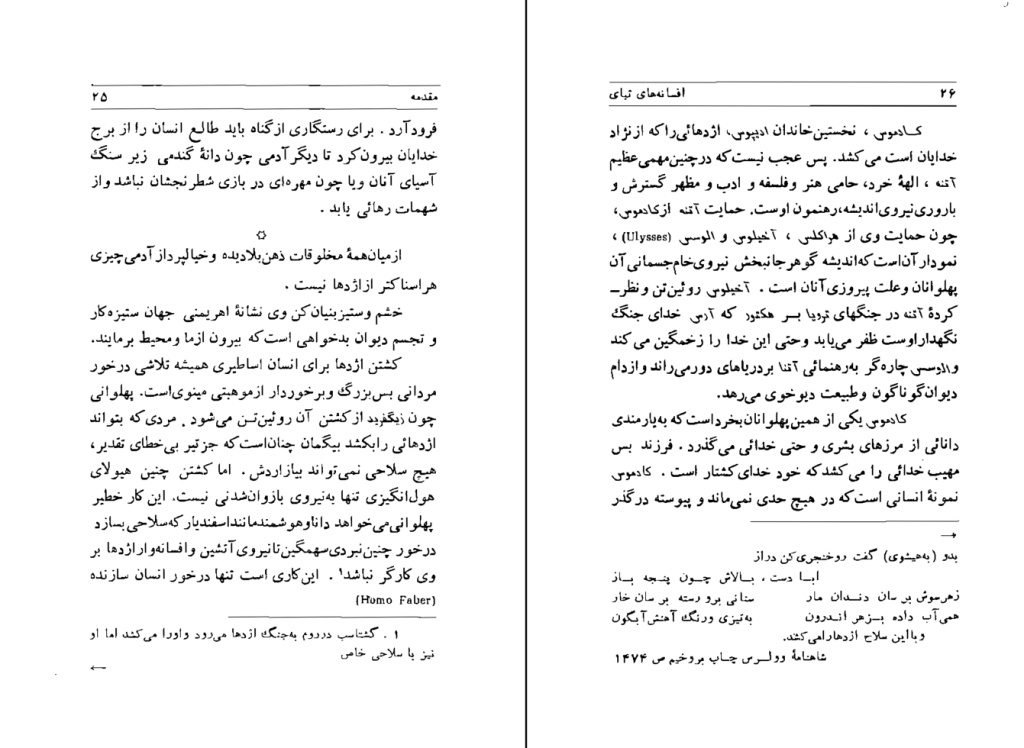 مقدمه ۲۵
فرودآرد . برای رستگاری ازگناه باید طالع انسان را از برج
خدایان بیرون‌کرد تا دیگر آدمی چون دانهٔ گندمی زیر سنگ
آسیای آنان ویا چون مهره‌ای در بازی شطرنجشان نباشد واز
شهمات رهائی یابد .
ازمیان‌همهٔ مخلوقات ذهن‌بلادیده وخیالپرداز آدمی‌چیزی
هراسناکتر ازاژدها نیست .
خشم وستیزبنیان‌کن وی نشانهٔ اهریمنی جهان ستیزه‌کار
و تجسم دیوان بدخواهی است‌که بیرون ازما ومحیط برمایند.
کشتن اژدها برای انسان اساطیری همیشه تلاشی درخور
مردانی بس‌بزرگ وبرخوردار ازموهبتی مینوی‌است. پهلوانی
چون زیگفرید ازکشتن آن روئین‌تـن می‌شود . مردی‌که بتواند
اژدهائی رابکشد بیگمان چنان‌است‌که جزتیر بی‌خطای تقدیر،
هیچ سلاحی نمی‌تواند بیازاردش . اما کشتن چنین هیولای
هول‌انگیزی تنها به‌نیروی بازوان‌شدنی نیست. این‌کار خطیر
پهلوانی‌می‌خواهد داناوهوشمندمانند‌اسفندیارکه‌سلاحی‌بسازد
درخور چنین‌نبردی‌سهمگین‌تانیروی‌آتشین وافسانه‌واراژدها بر
وی کارگر نباشد۱ . این‌کاری است تنها درخور انسان سازنده
(Homo Faber)
۱ . گشتاسب درروم به‌جنگ اژدها می‌رود واورا می‌کشد اما او
نیز با سلاحی خاص
←
۲۶ افسانه‌های تبای
کـادموس ، نخستین‌خاندان ادیپوس، اژدهائی‌راکه ازنژاد
خدایان است می‌کشد. پس عجب نیست‌که درچنین‌مهمی‌عظیم
آتنه ، الههٔ خرد، حامی هنر وفلسفه و ادب و مظهر گسترش و
باروری‌نیروی‌اندیشه،رهنمون اوست. حمایت آتنه ازکادموس،
چون حمایت وی از هراکلس ، آخیلوس و الوسس (Ulysses) ،
نمودارآن‌است‌که‌اندیشه گوهرجانبخش نیروی‌خام‌جسمانی‌آن
پهلوانان وعلت پیروزی‌آنان است . آخیلوس روئین‌تن ونظرـ
کردهٔ آتنه در جنگهای ترویا بـر هکتور که آرس خدای جنگ
نگهداراوست ظفر می‌یابد وحتی این خدا را زخمگین می‌کند
والوسس‌چاره‌گر به‌رهنمائی آتنا بردریاهای دورمی‌راند وازدام
دیوان‌گوناگون وطبیعت دیوخوی می‌رهد.
کادموس یکی از همین‌پهلوانان‌بخرداست‌که به‌یارمندی
دانائی از مرزهای بشری و حتی خدائی می‌گذرد . فرزند بس
مهیب خدائی را می‌کشدکه خود خدای‌کشتار است . کادموس
نمونهٔ انسانی است‌که در هیچ حدی نمی‌ماند و پیوسته درگذر
→
بدو (به‌هیشوی) گفت روخنجری‌کن دراز
ابـا دست ، بـالاش چـون پنجه بـاز
زهرسوش بر سان دنـدان مار سنانی برو رسته بر سان خار
همی‌آب داده بـزهر انـدرون به‌تیزی ورنگ آهنش‌آبگون
وبااین سلاح اژدهارامی‌کشد.
شاهنامهٔ وولـرس چـاپ بروخیم ص ۱۴۷۴